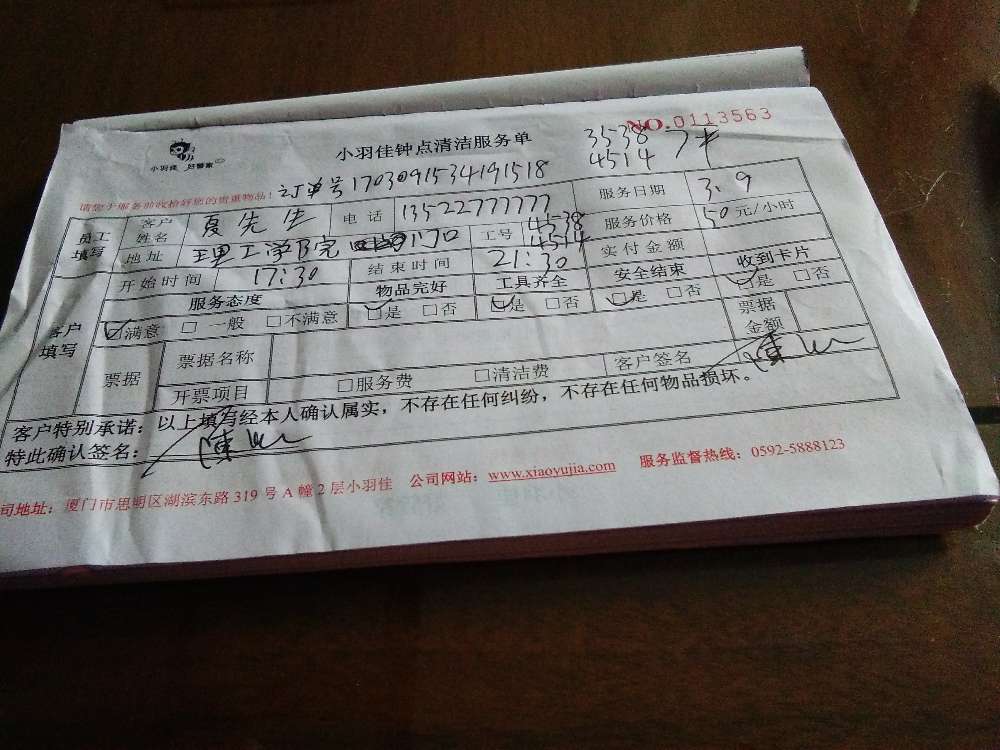 NO.0113563
小羽佳 好管家
小羽佳钟点清洁服务单
3538
4514
请您于服务前收捡好您的贵重物品!
订单号1703091534191518
员工填写 客户姓名 夏先生 电话 13522777777 服务日期 3.9
地址 理工学院 门口 工号 4538 4514 服务价格 50元/小时
开始时间 17:30 结束时间 21:30 实付金额
客户填写 服务态度 物品完好 工具齐全 安全结束 收到卡片
☑满意 □一般 □不满意 ☑是 □否 ☑是 □否 ☑是 □否 ☑是 □否
票据 票据名称 票据金额
开票项目 □服务费 □清洁费 客户签名 陳
客户特别承诺:以上填写经本人确认属实,不存在任何纠纷,不存在任何物品损坏。
特此确认签名: 陳
司地址:厦门市思明区湖滨东路319号A幢2层小羽佳 公司网站:www.xiaoyujia.com 服务监督热线:0592-5888123